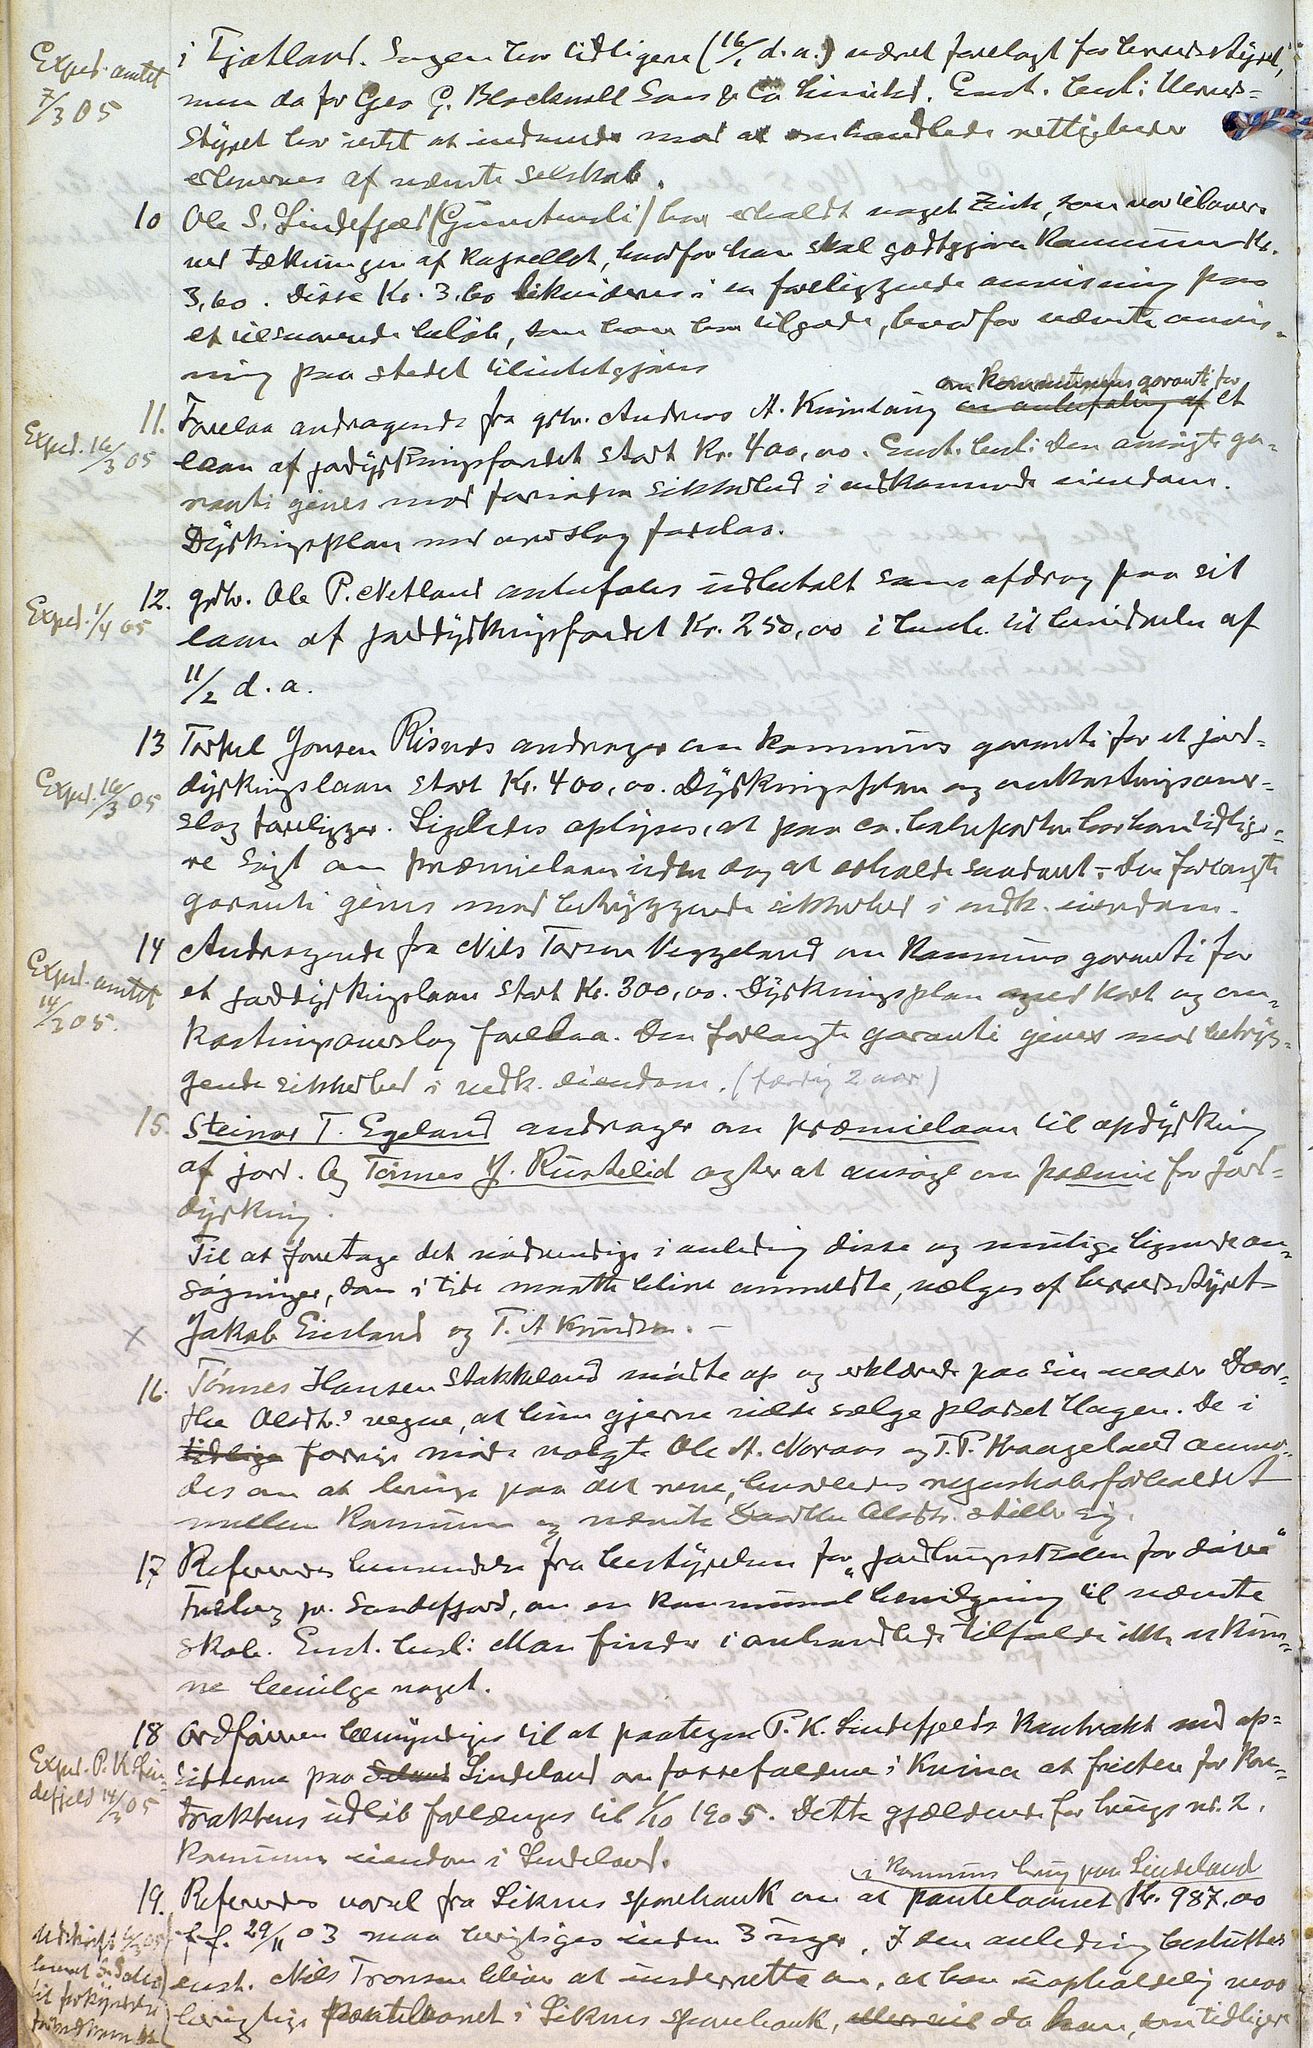 i Fjotland. Sagen har tidligere (16/1 d.a.) været forelagt for herredsstyret,
Exped. amtet
7/3 05
men da for Geo G. Blackwell Sons & Co limited. Enst. besl: Herreds-
styret har intet at indvende mod at omhandlede rettigheder
erhverves af nævnte selskab.
10 Ole S. Lindefjeld (Gunstveit) har erholdt noget Zink, som var tilovers
ved tækningen af Kapellet, hvorfor han skal godtgjøre Kommunen Kr.
3,60. Disse Kr. 3,60 likvideres i en foreliggende anvisning paa
et tilsvarende beløb, som han har tilgode, hvorfor nævnte anvis-
ning paa stedet tilintetgjøres
om kommunens garanti for
11. Forelaa andragende fra gbr. Andreas A. Kvinlaug om anbefaling af et
Exped. 16/3 05
laan af jorddyrkningsfondet stort Kr. 400,00. Enst. besl: Den ansøgte ga-
ranti gives mod fornøden sikkerhed i vedkommende eiendom.
Dyrkningsplan med overslag forelaa.
12. gbr. Ole P. Netland anbefales udbetalt som afdrag paa sit
Exped. 1/4 05
laan af jorddyrkningsfondet Kr. 250,00 i henh. til besigtelse af
11/2 d.a.
13 Torkel Jonsen Risnes andrager om kommunens garanti for et jord-
Exped. 16/3 05
dyrkningslaan stort Kr. 400,00. Dyrkningsplan og omkostningsover-
slag foreligger. Ligeledes oplyses, at paa en. har han tidlige-
re søgt om præmielaan uden dog at erholde saadant. - Den forlangte
garanti gives mod betryggende sikkerhed i vedk. eiendom.
14 Andragende fra Nils Torsen Veggeland om Kommunens garanti for
Exped. amtet
14/3 05.
et jorddyrkningslaan stort Kr. 300,00. Dyrkningsplan med kart og om-
kostningsoverslag forelaa. Den forlangte garanti gives mod betryg-
gende sikkerhed i vedk. eiendom. (færdig 2 aar)
15. Steinar T. Egeland andrager om præmielaan til opdyrkning
af jord. Og Tønnes J. Rustelid agter at ansøge om præmie for jord-
dyrkning.
Til at foretage det nødvendige i anledning disse og mulige lignende an-
søgninger, som i tide maatte blive anmeldte, vælges af herredsstyret
x Jakob Eiesland og T. A Knudsen. -
16. Tønnes Hansen Stakkeland mødte op og erklærede paa sin moder Door-
the Olsdtr.s vegne, at hun gjerne vilde sælge pladset Hagen. De i
tidlige forrige møde valgte Ole A. Moraas og T. P. Kvaageland anmo-
des om at bringe paa det rene, hvorledes regnskabsforholdet
mellem Kommunen og nævnte Dorthe Olsdtr. stiller sig.
17 Refereredes henvendelse fra bestyrelsen for "Jordbrugsskolen for døve"
pr. Sandefjord, om en kommunal bevilgning til nævnte
skole. Enst. besl: Man finder i omhandlede tilfælde ikke at kun-
ne bevilge noget.
18 Ordføreren bemyndiges til at paategne P. K. Lindefjelds Kontrakt med op-
Exped. P. K. Lin-
defjeld 14/3 05
sidderne paa Lindeland om fossefaldene i Kvina at fristen for Kon-
traktens udløb forlænges til 1/10 1905. Dette gjældende for brugs nr. 2,
Kommunens eiendom i Lindeland.
i Kommunens brug paa Lindeland
19. Refereredes varsel fra Liknes sparebank om at pantelaanet Kr. 987,00
f.f. 29/11 03 maa berigtiges inden 3 uger. I den anledning besluttes
enst. Nils Tronsen bliver at underrette om, at han uopholdelig maa
til forkyndelse
berigtige pantelaanet i Liknes sparebank, da han, som tidligere